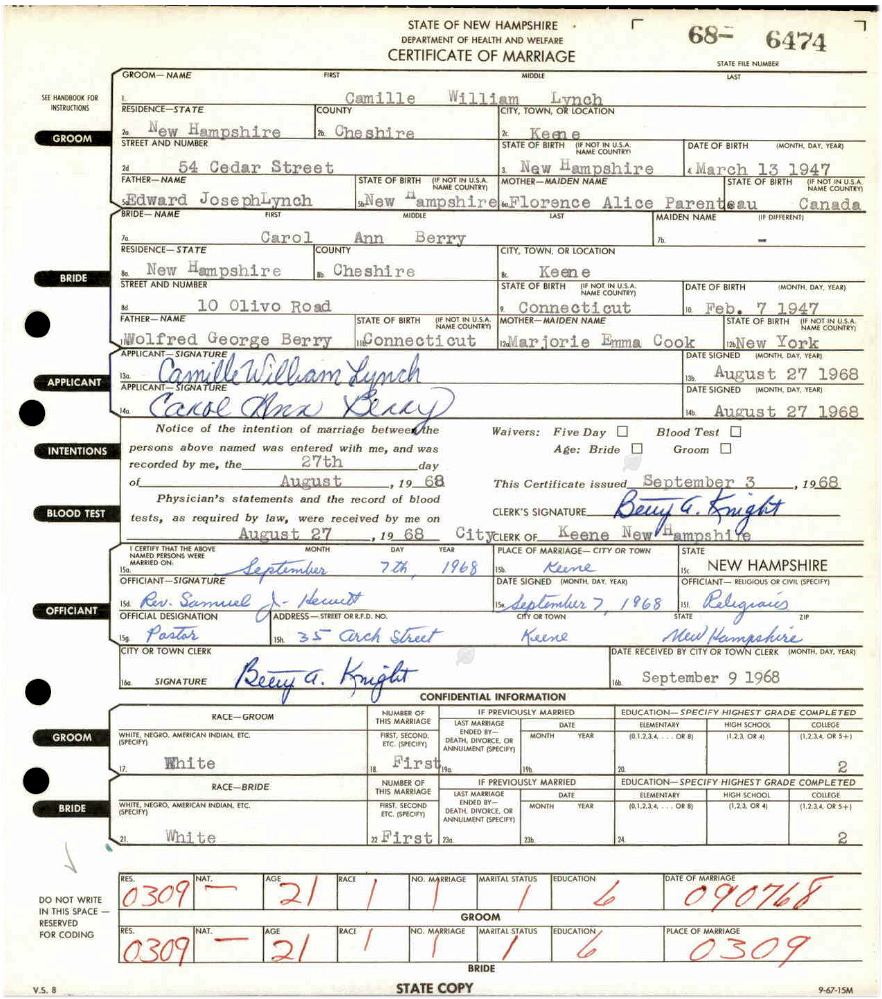 STATE OF NEW HAMPSHIRE
DEPARTMENT OF HEALTH AND WELFARE
CERTIFICATE OF MARRIAGE
68- 6474
STATE FILE NUMBER
SEE HANDBOOK FOR INSTRUCTIONS
GROOM
GROOM—NAME FIRST MIDDLE LAST
1. Camille William Lynch
RESIDENCE—STATE COUNTY CITY, TOWN, OR LOCATION
2a. New Hampshire 2b. Cheshire 2c. Keene
STREET AND NUMBER STATE OF BIRTH (IF NOT IN U.S.A. NAME COUNTRY) DATE OF BIRTH (MONTH, DAY, YEAR)
2d 54 Cedar Street 3. New Hampshire 4. March 13 1947
FATHER—NAME STATE OF BIRTH (IF NOT IN U.S.A. NAME COUNTRY) MOTHER—MAIDEN NAME STATE OF BIRTH (IF NOT IN U.S.A. NAME COUNTRY)
5a. Edward JosephLynch 5b. New Hampshire 6a. Florence Alice Parenteau Canada
BRIDE
BRIDE—NAME FIRST MIDDLE LAST MAIDEN NAME (IF DIFFERENT)
7a. Carol Ann Berry 7b. -
RESIDENCE—STATE COUNTY CITY, TOWN, OR LOCATION
8a. New Hampshire 8b Cheshire 8c. Keene
STREET AND NUMBER STATE OF BIRTH (IF NOT IN U.S.A. NAME COUNTRY) DATE OF BIRTH (MONTH, DAY, YEAR)
8d 10 Olivo Road 9. Connecticut 10. Feb. 7 1947
FATHER—NAME STATE OF BIRTH (IF NOT IN U.S.A. NAME COUNTRY) MOTHER—MAIDEN NAME STATE OF BIRTH (IF NOT IN U.S.A. NAME COUNTRY)
Wolfred George Berry Connecticut 12a Marjorie Emma Cook 12b New York
APPLICANT
APPLICANT—SIGNATURE DATE SIGNED (MONTH, DAY, YEAR)
13a. Camille William Lynch 13b. August 27 1968
APPLICANT—SIGNATURE DATE SIGNED (MONTH, DAY, YEAR)
14a. Carol Ann Berry 14b. August 27 1968
INTENTIONS
Notice of the intention of marriage between the
persons above named was entered with me, and was
recorded by me, the 27th day
of August , 19 68
Waivers: Five Day ☐ Blood Test ☐
Age: Bride ☐ Groom ☐
This Certificate issued September 3 , 1968
BLOOD TEST
Physician's statements and the record of blood
tests, as required by law, were received by me on
August 27 , 19 68
CLERK'S SIGNATURE Betty A. Knight
City CLERK OF Keene New Hampshire
OFFICIANT
I CERTIFY THAT THE ABOVE NAMED PERSONS WERE MARRIED ON: MONTH DAY YEAR PLACE OF MARRIAGE—CITY OR TOWN STATE
15a. September 7th, 1968 15b. Keene 15c. NEW HAMPSHIRE
OFFICIANT—SIGNATURE DATE SIGNED (MONTH, DAY, YEAR) OFFICIANT—RELIGIOUS OR CIVIL (SPECIFY)
15d. Rev. Samuel J. Hewitt 15e. September 7, 1968 15f. Religious
OFFICIAL DESIGNATION ADDRESS—STREET OR R.F.D. NO. CITY OR TOWN STATE ZIP
15g. Pastor 15h. 35 Arch Street Keene New Hampshire
CITY OR TOWN CLERK DATE RECEIVED BY CITY OR TOWN CLERK (MONTH, DAY, YEAR)
16a. SIGNATURE Betty A. Knight 16b. September 9 1968
CONFIDENTIAL INFORMATION
GROOM
RACE—GROOM NUMBER OF THIS MARRIAGE IF PREVIOUSLY MARRIED EDUCATION—SPECIFY HIGHEST GRADE COMPLETED
WHITE, NEGRO, AMERICAN INDIAN, ETC. (SPECIFY) FIRST, SECOND, ETC. (SPECIFY) LAST MARRIAGE ENDED BY— DEATH, DIVORCE, OR ANNULMENT (SPECIFY) DATE MONTH YEAR ELEMENTARY (0,1,2,3,4, . . . . OR 8) HIGH SCHOOL (1,2,3, OR 4) COLLEGE (1,2,3,4, OR 5+)
17. White 18. First 19a. 19b. 20. 2
BRIDE
RACE—BRIDE NUMBER OF THIS MARRIAGE IF PREVIOUSLY MARRIED EDUCATION—SPECIFY HIGHEST GRADE COMPLETED
WHITE, NEGRO, AMERICAN INDIAN, ETC. (SPECIFY) FIRST, SECOND ETC. (SPECIFY) LAST MARRIAGE ENDED BY— DEATH, DIVORCE, OR ANNULMENT (SPECIFY) DATE MONTH YEAR ELEMENTARY (0,1,2,3,4, . . . . OR 8) HIGH SCHOOL (1,2,3, OR 4) COLLEGE (1,2,3,4, OR 5+)
21. White 22 First 23a. 23b. 24. 2
DO NOT WRITE IN THIS SPACE — RESERVED FOR CODING
RES. NAT. AGE RACE NO. MARRIAGE MARITAL STATUS EDUCATION DATE OF MARRIAGE
0309 — 21 1 1 1 6 090768
GROOM
RES. NAT. AGE RACE NO. MARRIAGE MARITAL STATUS EDUCATION PLACE OF MARRIAGE
0309 — 21 1 1 1 6 0309
BRIDE
V.S. 8 STATE COPY 9-67-15M